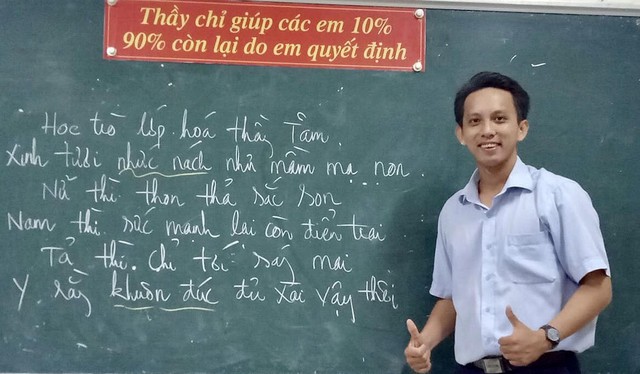 Thầy chỉ giúp các em 10%
90% còn lại do em quyết định
Học trò lớp hoá thầy Tâm
Xinh tươi nhức nách như mầm mạ non.
Nữ thì thon thả sắc son
Nam thì sức mạnh lại còn điển trai
Tả thì chỉ tới sáng mai
Y rằng khuôn đúc đủ xài vậy thôi